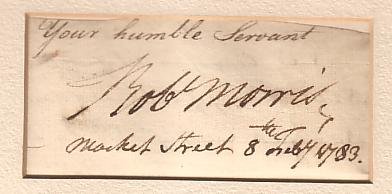 Your humble Servant
Robt Morris
Market Street 8th Feby 1783.